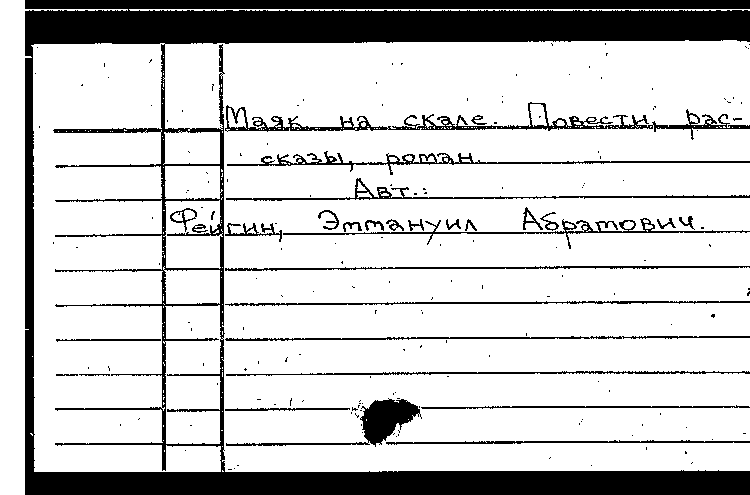 Маяк на скале. Повести, рас-
сказы, роман.
Авт.:
Фейгин, Эммануил Абрамович.